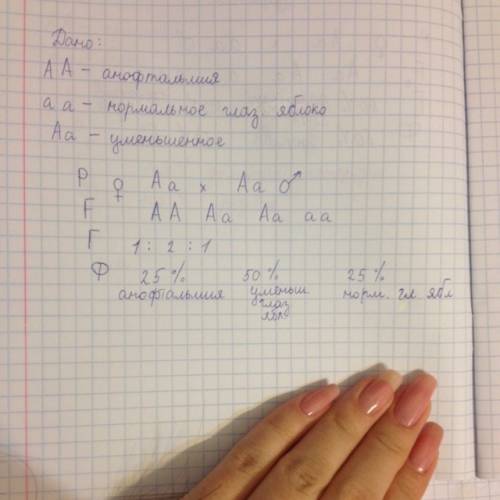 Дано:
АА - анофтальмия
аа - нормальное глаз. яблоко
Аа - уменьшенное
Р ♀ Аа х Аа ♂
F АА Аа Аа аа
Г 1 : 2 : 1
Ф 25% 50% 25%
анофтальмия уменьш норм. гл ябл
глаз
ябл